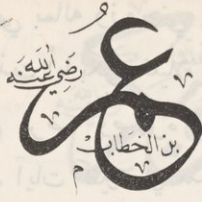 عمر
بن الخطاب
رضي الله عنه